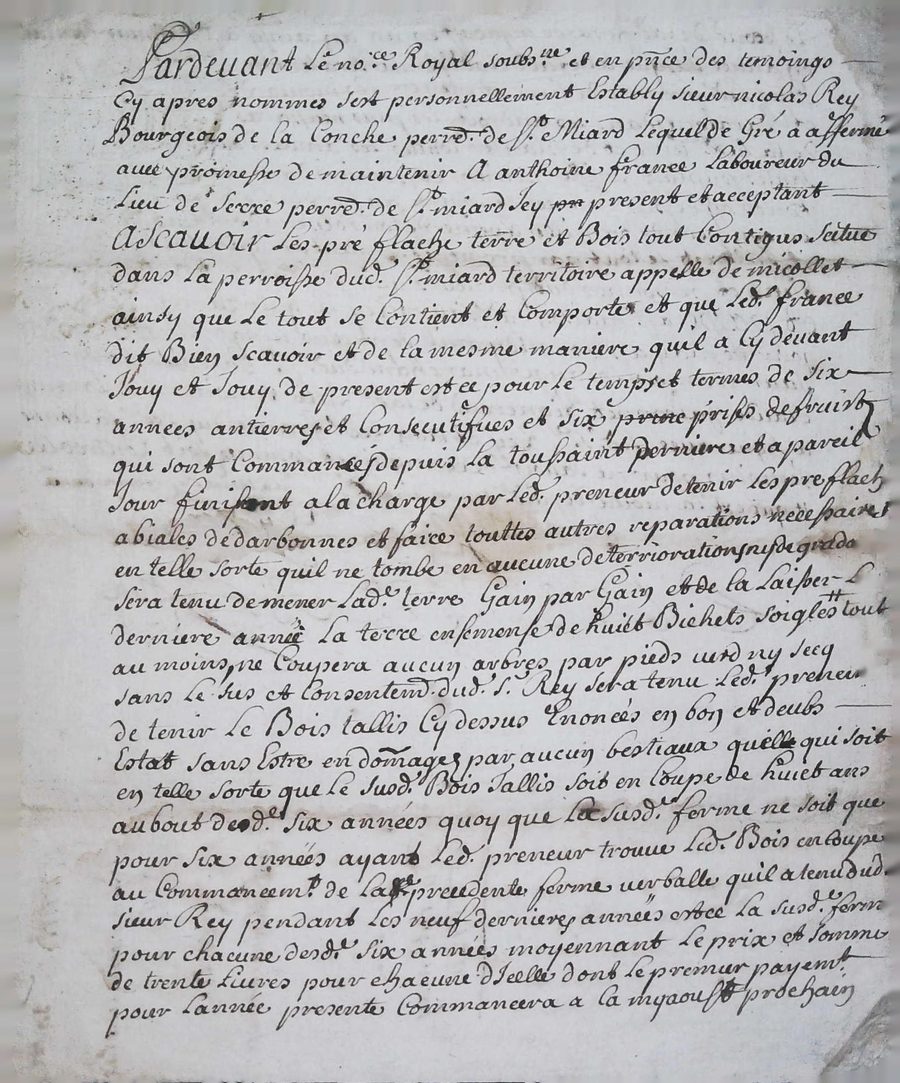 Pardevant Le no.re Royal soubs.ne et en pñce des temoings
Cy apres nommes sest personnellement Estably sieur nicolas Rey
Bourgeois de la Conche perrd. de S.t Miard Lequel de Gré a affermé
avec promesse de maintenir A anthoine france Laboureur du
Lieu de Serre perrd. de S.t miard Jcy present et acceptant
Ascavoir Les pré flache terre et Bois tout Contigus scitué
dans La perroisse dud. S.t miard territoire appelle de micollet
ainsy que Le tout se Contient et Comporte et que Led. france
dit Bien scavoir et de la mesme maniere quil a Cy devant
Jouy et Jouy de present et ce pour Le temps et termes de six
annees antierres et Consecutifves et six prises de fruist
qui sont Commancés depuis La toussaint derniere et a pareil
Jour finisant a la charge par Led. preneur de tenir Les pre flach
a biales dedarbonnes et faire touttes autres reparations necessaires
en telle sorte quil ne tombe en aucune deterriorations ny degrada
sera tenu de mener Lad. terre Gain par Gain et de la Laisser L
derniere année La terre ensemensé de huict Bichets soigle tout
au moins, ne Coupera aucun arbres par pieds verd ny secq
sans Le sus et Consentemd. dud. s.r Rey sera tenu Led. preneur
de tenir Le Bois tallis Cy dessus Enoncés en bon et deubs
Estat sans Estre endomagez par aucun bestiaux quelle qui soit
en telle sorte que Le susd. Bois Tallis soit en Coupe de huict ans
au bout desd. six années quoy que La susd. ferme ne soit que
pour six années ayant Led. preneur trouve Led. Bois en Coupe
au Commancem.t de La precedente ferme verballe quil a tenu dud.
sieur Rey pendant Les neuf dernieres années et ce La susd. ferm
pour chacune desd. six années moyennant Le prix et somme
de trente Livres pour chacune dIcelle dont Le premier payem.t
pour Lannée presente Commancera a la my aoust prochain